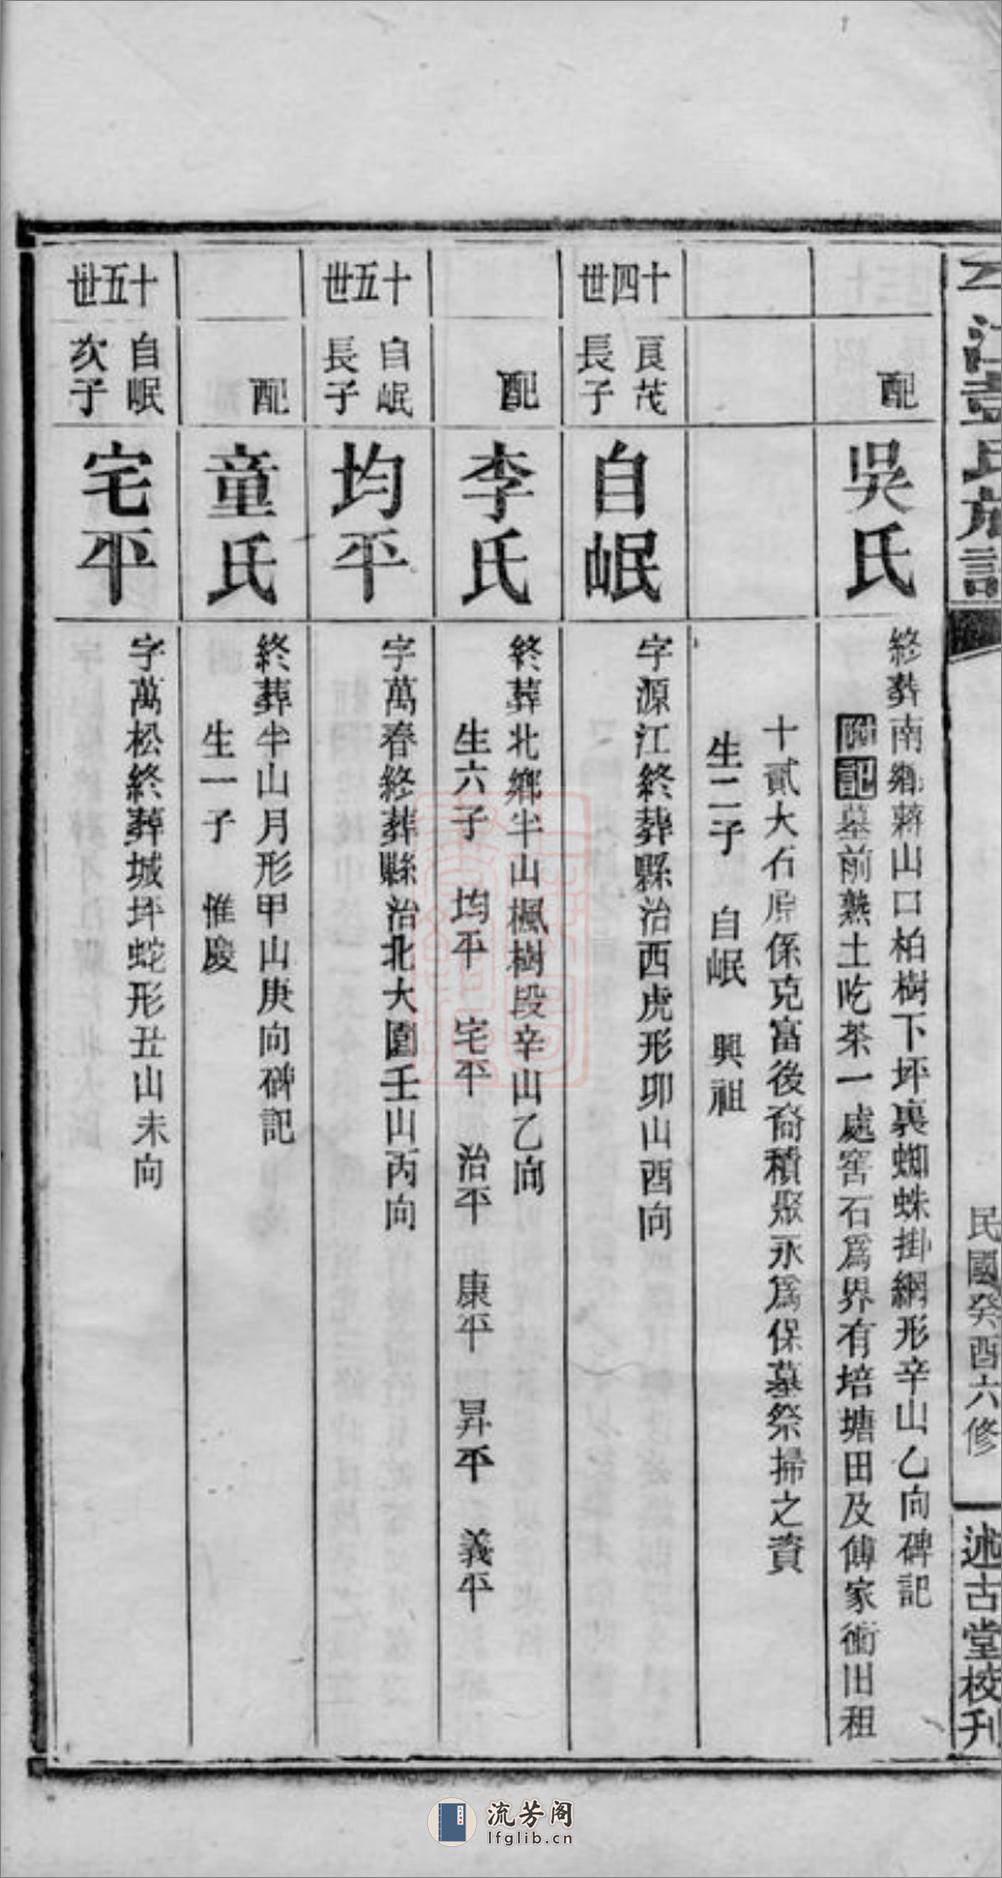 江彭氏族譜
民國癸酉六修
述古堂校刋
配
吳氏
終葬南鄉蔣山口柏樹下坪裏蜘蛛掛網形辛山乙向碑記
附記墓前熟土吃茶一處窖石爲界有培塘田及傅家衝旧租
十貳大石原係克富後裔積聚永爲保墓祭掃之資
生二子 自岷 興祖
十四世
良茂
長子
自岷
字源江終葬縣治西虎形卯山酉向
配
李氏
終葬北鄉半山楓樹段辛山乙向
生六子 均平 宅平 治平 康平 昇平 義平
十五世
自岷
長子
均平
字萬春終葬縣治北大園壬山丙向
配
童氏
終葬半山月形甲山庚向碑記
生一子 惟慶
十五世
自岷
次子
宅平
字萬松終葬城坪蛇形丑山未向
流芳阁
lfglib.cn